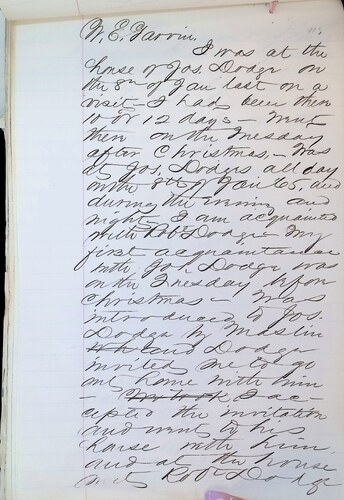 W. E. Farvin.
I was at the
house of Jos. Dodge on
the 8th of Jan last on a
visit - I had been there
10 or 12 days - Went
there on the Tuesday
after Christmas, - Was
at Jos, Dodges all day
on the 8th of Jan 65, and
during the evening and
night, I am acquainted
with Robt Dodge - My
first acquaintance
with Jos Dodge was
on the Tuesday before
Christmas - Was
introduced to Jos.
Dodge by Maslin
and Dodge
invited me to go
out home with him
- I ac-
cepted the invitation
and went to his
house with him
and at the house
met Robt Dodge